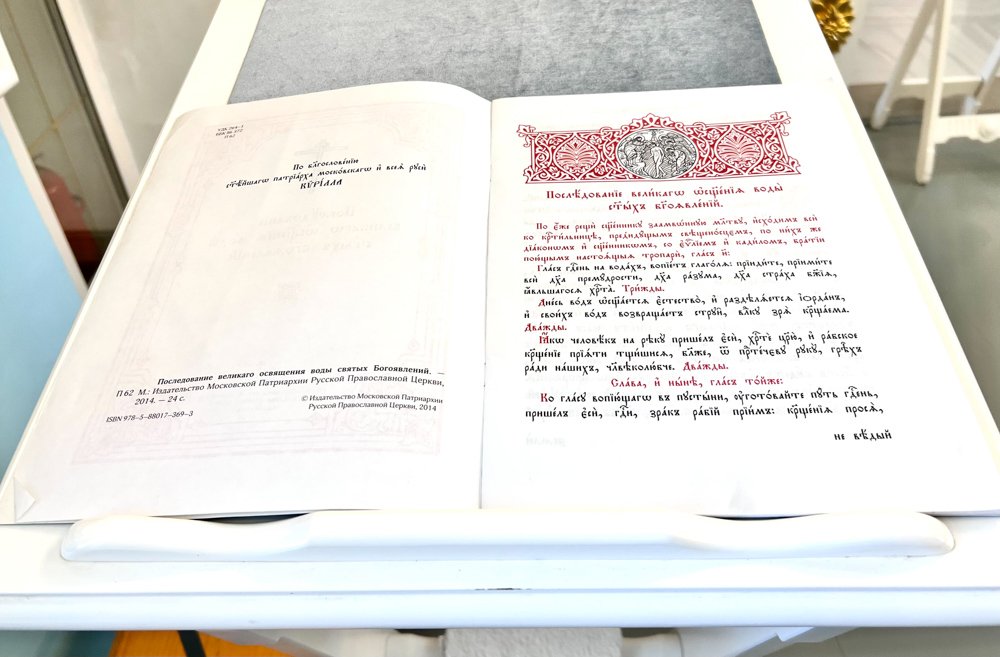 УДК 264-1
ББК 86.372
П 62
По блгⷭ҇ове́нїю
ст҃ѣ́йшагѡ патрїа́рха моско́вскагѡ и҆ всеѧ̀ рꙋсѝ
КѴРІ́ЛЛА
Последование великаго освящения воды святых Богоявлений. —
П 62 М.: Издательство Московской Патриархии Русской Православной Церкви,
2014. — 24 с.
© Издательство Московской Патриархии
Русской Православной Церкви, 2014
ISBN 978-5-88017-369-3
Послѣ́дованїе вели́кагѡ ѡ҆сщ҃е́нїѧ воды̀
ст҃ы́хъ бг҃оѧвле́нїй.
По є҆́же рещѝ сщ҃е́нникꙋ заамвѡ́ннꙋю мл҃твꙋ, и҆схо́димъ всѝ
ко крⷭ҇ти́льницѣ, предидꙋ́щымъ свѣщено́сцемъ, по ни́хъ же
дїа́кономъ и҆ сщ҃е́нникѡмъ, со є҆ѵⷢ҇лїемъ и҆ кади́ломъ, бра́тїи
пою́щымъ настоѧ́щыѧ тропарѝ, гла́съ и҃:
Гла́съ гдⷭ҇ень на вода́хъ, вопїе́тъ глаго́лѧ: прїиди́те, прїими́те
всѝ дх҃а премꙋ́дрости, дх҃а ра́зꙋма, дх҃а стра́ха бж҃їѧ,
ꙗ҆́вльшагосѧ хрⷭ҇та̀. Три́жды.
Дне́сь во́дъ ѡ҆сщ҃а́етсѧ є҆стество̀, и҆ раздѣлѧ́етсѧ і҆ѻрда́нъ,
и҆ свои́хъ во́дъ возвраща́етъ стрꙋи̑, влⷣкꙋ зрѧ̀ крⷭ҇ща́ема.
Два́жды.
Ꙗ҆́кѡ человѣ́къ на рѣкꙋ̀ прише́лъ є҆сѝ, хрⷭ҇тѐ цр҃ю̀, и҆ ра́бское
крⷭ҇ще́нїе прїѧ́ти тщи́шисѧ, бл҃же, ѿ прⷣте́чевꙋ рꙋкꙋ̀, грѣ̑хъ
ра́ди на́шихъ, чл҃вѣколю́бче. Два́жды.
Сла́ва, и҆ ны́нѣ, гла́съ то́йже:
Ко гла́сꙋ вопїю́щагѡ въ пꙋсты́ни, ᲂу҆гото́вайте пꙋ́ть гдⷭ҇ень,
прише́лъ є҆сѝ, гдⷭ҇и, зра́къ ра́бїй прїи́мъ: крⷭ҇ще́нїѧ просѧ̀,
не вѣ́дый